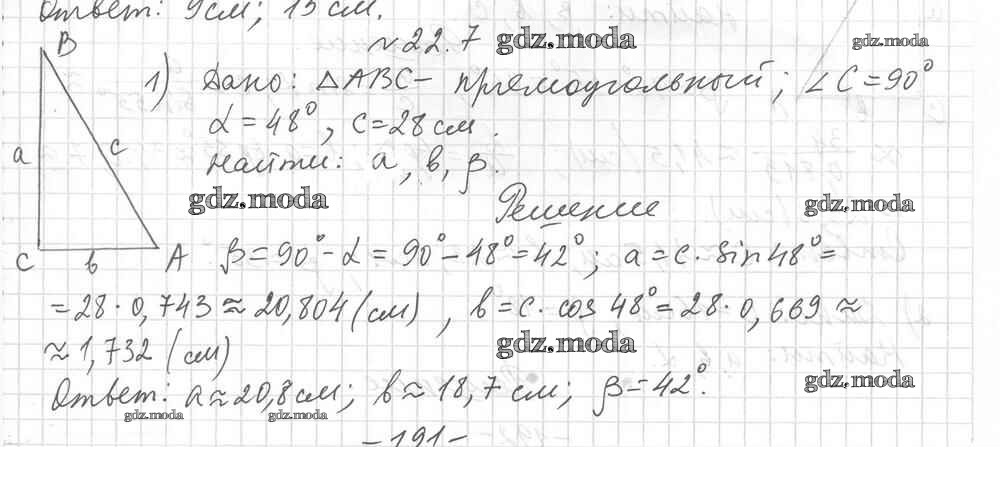 Ответ: 9см; 15 см.
№22.7 gdz.moda gdz.moda
B
1) Дано: △ABC – прямоугольный; ∠C=90°
α=48°, c=28см.
a c
Найти: a, в, β.
gdz.moda gdz.moda
Решение
C в A β=90°-α=90°-48°=42°; a=c·sin48°=
=28·0,743≈20,804(см), в=c·cos48°=28·0,669≈
≈1,732 (см) gdz.moda
gdz.moda
Ответ: a≈20,8см; в≈18,7см; β=42°.
gdz.moda gdz.moda
-191-